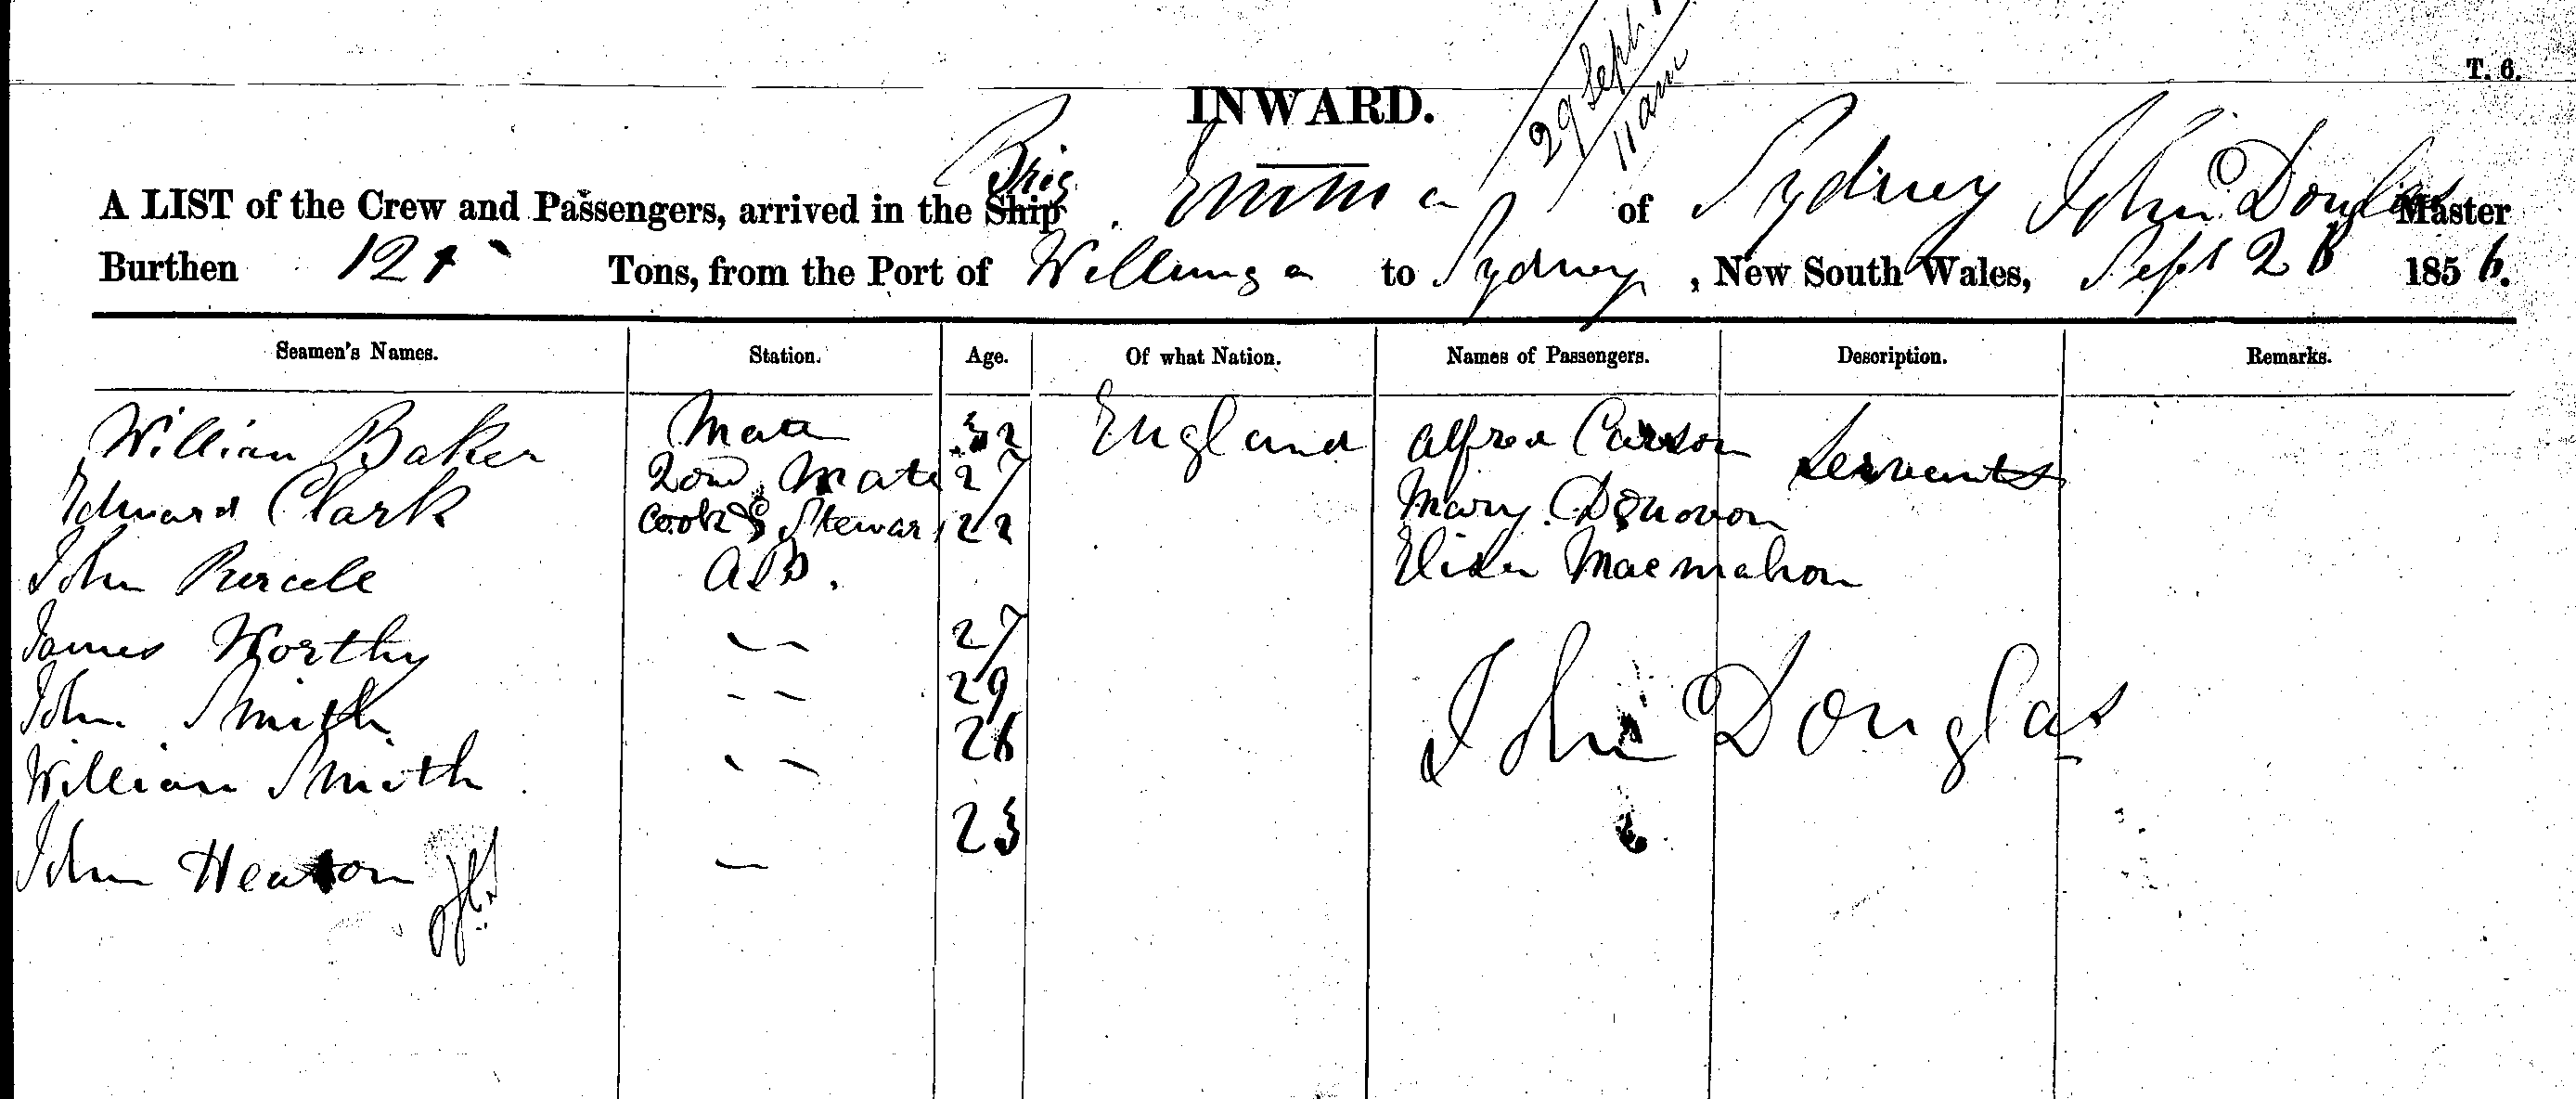 29 Sept
11 am
T. 6.
INWARD.
Brig
A LIST of the Crew and Passengers, arrived in the Ship Emma of Sydney John Douglas Master
Burthen Tons, from the Port of Willunga to Sydney, New South Wales, Sept 1856.
Seamen's Names. Station. Age. Of what Nation. Names of Passengers. Description. Remarks.
William Baker Mate 32 England Alfred Carson Servants
Edward Clark 2ond Mate 27 Mary Donovon
John Purcele Cook & Steward 22 Elisa Macmahon
James Worthy A B. 27
John Smith 29
William Smith 26
John Heaton 23
John Douglas